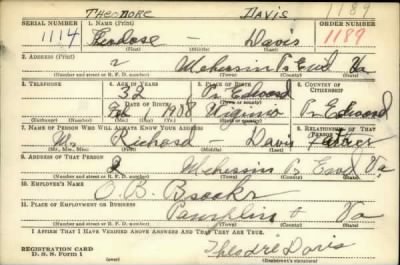 THEODORE DAVIS 1189
SERIAL NUMBER 1. NAME (Print) ORDER NUMBER
1114 Theodose - Davis 1189
(First) (Middle) (Last)
2. ADDRESS (Print)
2 Meherrin Pr Ewd Va
(Number and street or R. F. D. number) (Town) (County) (State)
3. TELEPHONE 4. AGE IN YEARS 5. PLACE OF BIRTH 6. COUNTRY OF CITIZENSHIP
32 Pr Edward
DATE OF BIRTH (Town or county)
1908 Virginia Pr Edward
(Exchange) (Number) (Mo.) (Day) (Yr.) (State or country)
7. NAME OF PERSON WHO WILL ALWAYS KNOW YOUR ADDRESS 8. RELATIONSHIP OF THAT PERSON
M. Richard Davis Father
(Mr., Mrs., Miss) (First) (Middle) (Last)
9. ADDRESS OF THAT PERSON
2 Meherrin Pr Ewd Va
(Number and street or R. F. D. number) (Town) (County) (State)
10. EMPLOYER'S NAME
O. B. Brooks
11. PLACE OF EMPLOYMENT OR BUSINESS
Pamplin Va
(Number and street or R. F. D. number) (Town) (County) (State)
I AFFIRM THAT I HAVE VERIFIED ABOVE ANSWERS AND THAT THEY ARE TRUE.
REGISTRATION CARD
D. S. S. Form 1
Theodre Davis
(Registrant's signature)